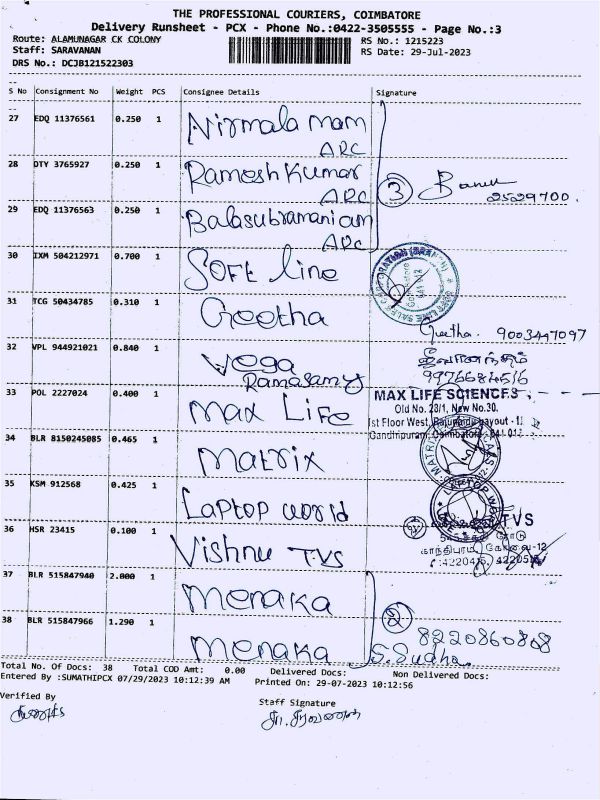 THE PROFESSIONAL COURIERS, COIMBATORE
Delivery Runsheet - PCX - Phone No.:0422-3505555 - Page No.:3
Route: ALAMUNAGAR CK COLONY
RS No.: 1215223
Staff: SARAVANAN
RS Date: 29-Jul-2023
DRS No.: DCJB121522303
S No Consignment No Weight PCS Consignee Details Signature
27 EDQ 11376561 0.250 1 Nirmala mam
ARC
28 DTY 3765927 0.250 1 Ramesh Kumar
ARC
3
2529700.
29 EDQ 11376563 0.250 1 Balasubramaniam
ARC
30 IXM 504212971 0.700 1 Soft line
31 TCG 50434785 0.310 1 Geetha
Geetha. 9003447097
32 VPL 944921021 0.840 1 Vega
Ramasamy
33 POL 2227024 0.400 1 Max Life
MAX LIFE SCIENCES
Old No. 23/1, New No.30.
1st Floor West, Layout -
Gandhipuram, Coimbatore
34 BLR 8150245085 0.465 1 Matrix
35 KSM 912568 0.425 1 Laptop world
36 HSR 23415 0.100 1 Vishnu TVS
TVS
காந்திபுரம், கோவை-12
:4220415,
37 BLR 515847940 2.000 1 Menaka
2
8220860808
38 BLR 515847966 1.290 1 Menaka
S. Sudha.
Total No. Of Docs: 38 Total COD Amt: 0.00 Delivered Docs: Non Delivered Docs:
Entered By :SUMATHIPCX 07/29/2023 10:12:39 AM Printed On: 29-07-2023 10:12:56
Verified By
Staff Signature
சா. சரவணன்